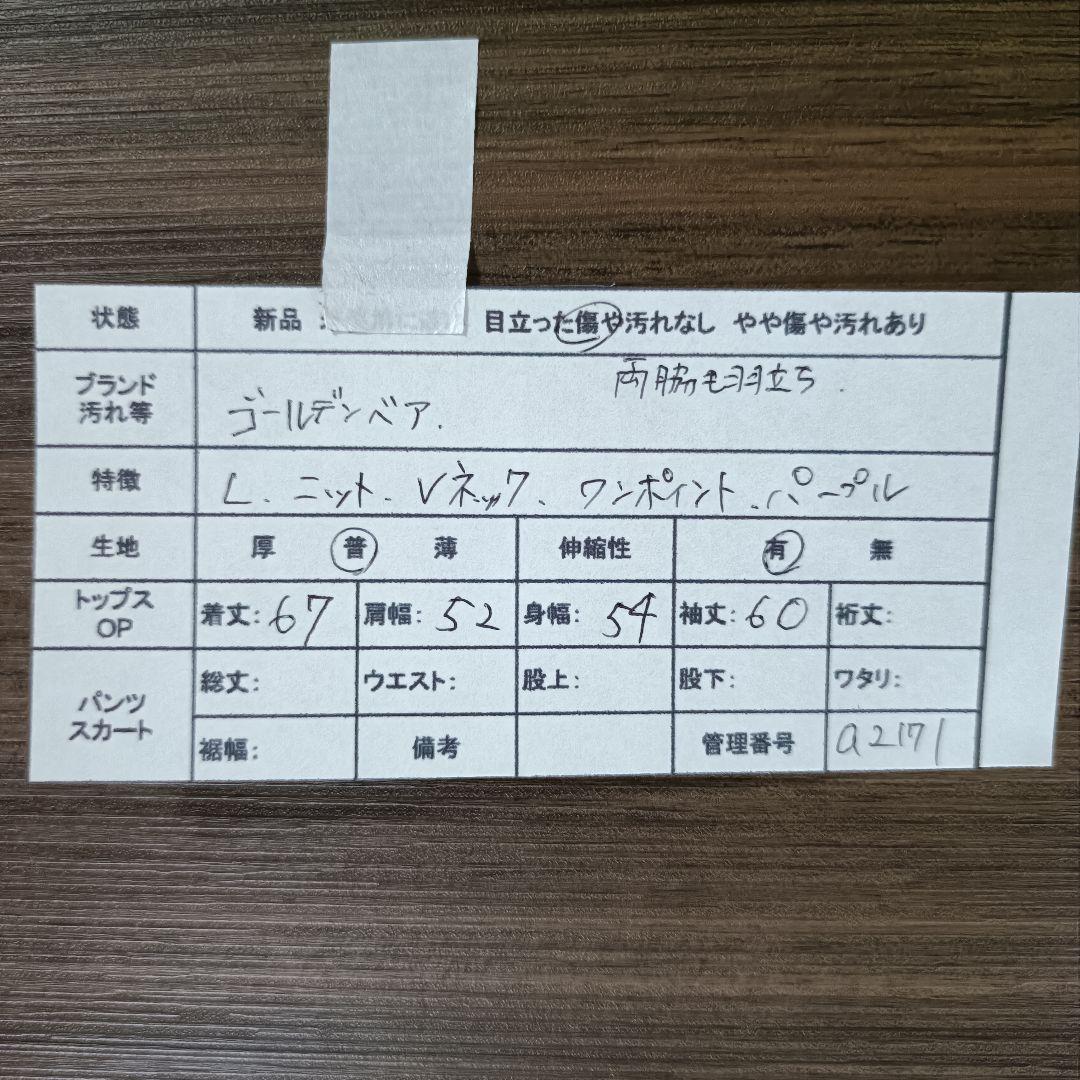 状態 新品 目立った傷や汚れなし やや傷や汚れあり
ブランド 汚れ等 ゴールデンベア. 両脇毛羽立ち.
特徴 L. ニット. Vネック. ワンポイント. パープル
生地 厚 普 薄 伸縮性 有 無
トップス OP 着丈: 67 肩幅: 52 身幅: 54 袖丈: 60 裄丈:
パンツ スカート 総丈: ウエスト: 股上: 股下: ワタリ:
裾幅: 備考 管理番号 a2171